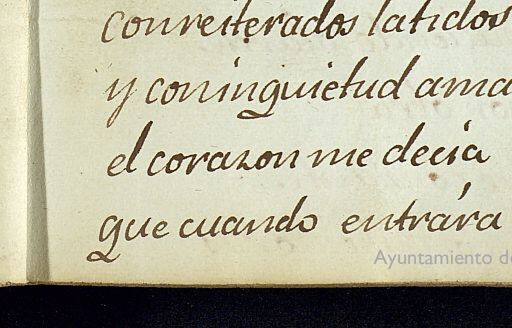 conreiterados latidos
y coninquietud ama
el corazon me decia
que cuando entrára
Ayuntamiento de